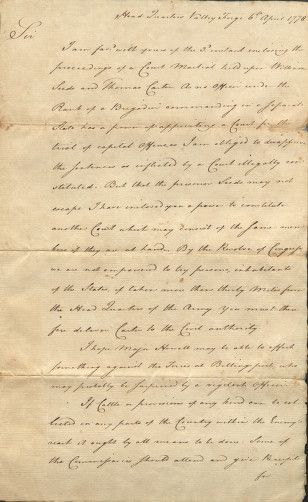 Head Quarters Valley Forge 6th April 1778
Sir
I am favd with yours of the 3d instant inclosing the
proceedings of a Court Martial held upon William
Seeds and Thomas Carter. As no Officer under the
Rank of a Brigadier commanding in a separate
State has a power of appointing a Court for the
trial of capital Offences I am obliged to disapprove
the sentences as inflicted by a Court illegally con
stituted. But that the prisoner Seeds may not
escape I have inclosed you a power to constitute
another Court which may consist of the same mem
bers if they are at hand. By the Resolve of Congress
we are not empowered to try persons, inhabitants
of the States, if taken more than thirty Miles from
the Head Quarters of the Army. You must there
fore deliver Carter to the Civil authority
I hope Major Howell may be able to effect
something against the Stores at Billingsport, who
may probably be surprised by a vigilant Officer
If Cattle or provisions of any kind can be col
lected in any parts of the Country within the Enemy
reach it ought by all means to be done. Some of
the Commissaries should attend and give Receipts
for